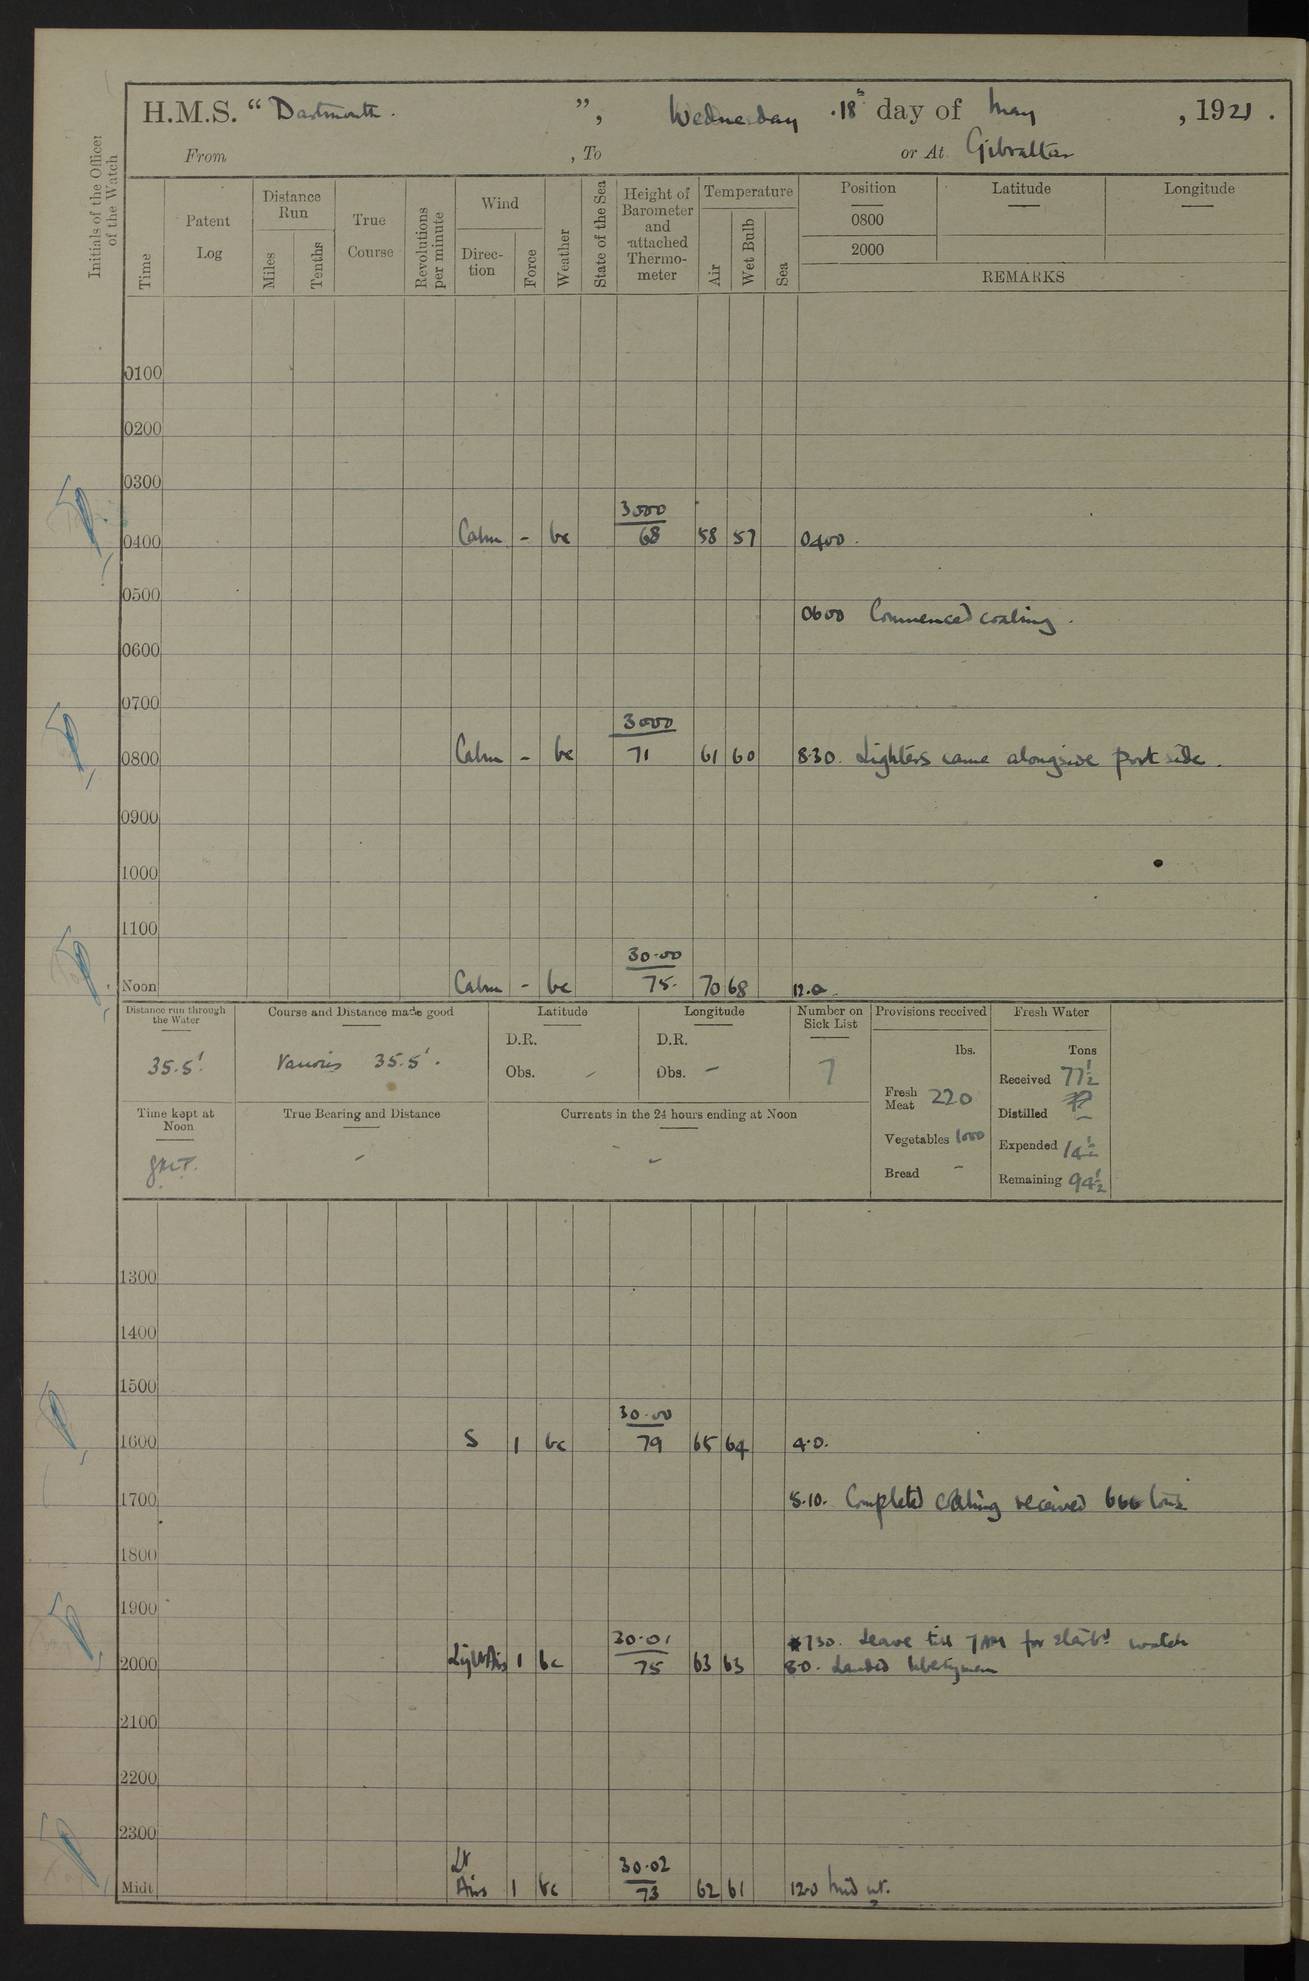 H.M.S. “ Dartmouth. ”, Wednesday 18th day of May , 1921 .
From , To or At Gibraltar
Initials of the Officer of the Watch
Time
Patent Log
Distance Run
Miles
Tenths
True Course
Revolutions per minute
Wind
Direc-tion
Force
Weather
State of the Sea
Height of Barometer and attached Thermo-meter
Temperature
Air
Wet Bulb
Sea
Position Latitude Longitude
0800
2000
REMARKS
0100
0200
0300
30.00
0400 Calm - bc 68 58 57 0400.
0500
0600 Commenced coaling.
0600
0700
30.00
0800 Calm - bc 71 61 60 8.30. Lighters came alongside port side.
0900
1000
1100
30.00
Noon Calm - bc 75. 70 68 12.0
Distance run through the Water
35.5'.
Course and Distance made good
Various 35.5'.
Latitude
D.R.
Obs. -
Longitude
D.R.
Obs. -
Number on Sick List
7
Provisions received
lbs.
Fresh Meat 220
Vegetables 1000
Bread -
Fresh Water
Tons
Received 77½
Distilled -
Expended 14½
Remaining 94½
Time kept at Noon
G.M.T.
True Bearing and Distance
-
Currents in the 24 hours ending at Noon
-
1300
1400
1500
30.00
1600 S 1 bc 79 65 64 4.0.
1700 5.10. Completed coaling received 666 tons
1800
1900
30.01 730. Leave till 7 AM for starbd watch
2000 Light Airs 1 bc 75 63 63 8.0. Landed libertymen
2100
2200
2300
Lt 30.02
Midt Airs 1 bc 73 62 61 12.0 Mid nt.